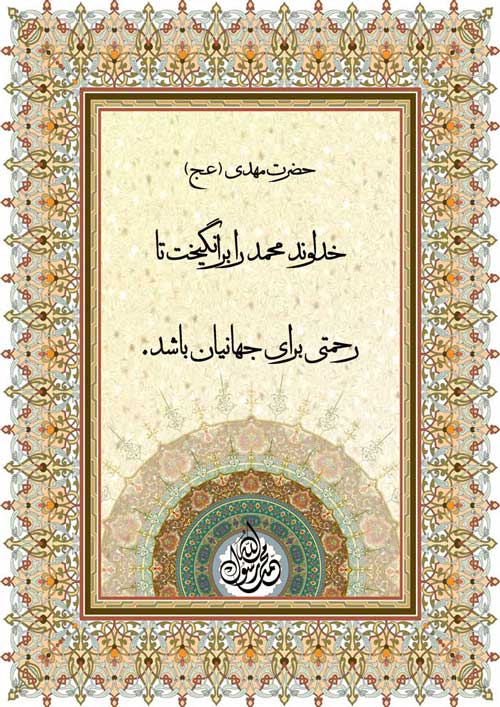 حضرت مهدی (عج)
خداوند محمد را برانگیخت تا
رحمتی برای جهانیان باشد.
محمد رسول الله